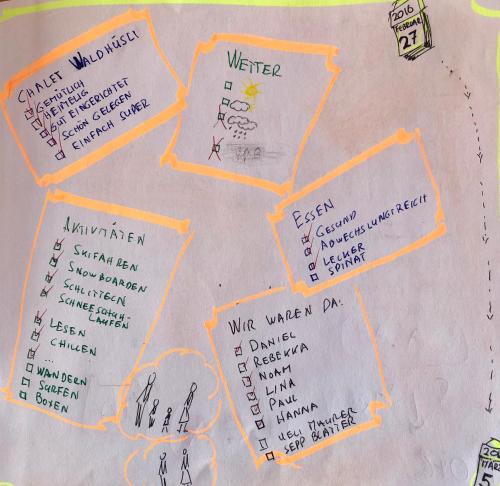 2016
FEBRUAR
27
CHALET WALDHÜSLI
GEMÜTLICH
HEIMELIG
GUT EINGERICHTET
SCHÖN GELEGEN
EINFACH SUPER
WETTER
ESSEN
GESUND
ABWECHSLUNGSREICH
LECKER
SPINAT
AKTIVITÄTEN
SKIFAHREN
SNOWBOARDEN
SCHLITTELN
SCHNEESCHUH-
LAUFEN
LESEN
CHILLEN
...
WANDERN
SURFEN
BOXEN
WIR WAREN DA:
DANIEL
REBEKKA
NOAH
LINA
PAUL
HANNA
UELI MAURER
SEPP BLATTER
MÄRZ
5